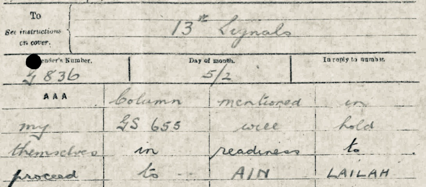 To
See instructions
on cover.
13th Signals
Sender's Number.
Day of month.
In reply to number.
G 836
5/2
AAA Column mentioned in
my GS 655 will hold
themselves in readiness to
proceed to AIN LAILAH